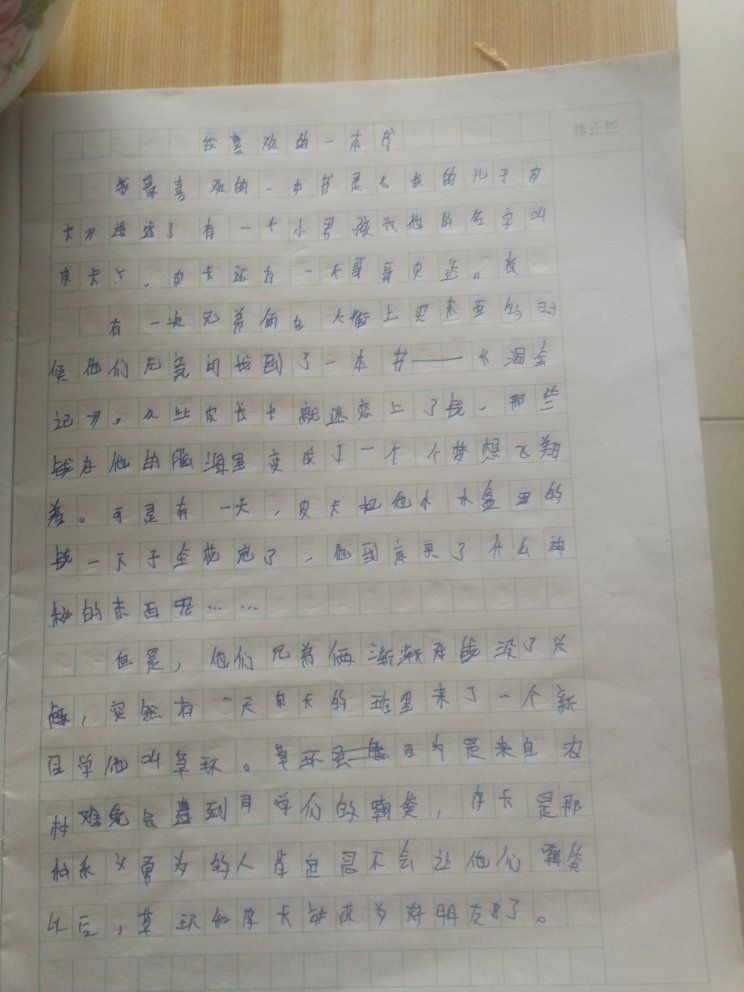 修正栏
我喜欢的一本书
我最喜欢的一本书是《 的儿子皮
卡》 了有一个小男孩 他的名字叫
皮卡 ，皮卡还有一个哥哥皮达。
有一次兄弟俩在大街上买东西的时
候他们无意间找到了一本书——《淘金
记》。从此皮卡 就迷恋上了钱，那些
钱在他的脑海里变成了一个个梦想飞翔
着。可是有一天，皮卡把他 木盒里的
钱一下子全花完了，他到底买了什么神
秘的东西呢……
但是，他们兄弟俩渐渐对钱没了兴
趣，突然有一天皮卡的班里来了一个新
同学他叫草环。草环 因为是来自农
村难免会遭到同学们的嘲笑，皮卡是那
种见义勇为的人肯定是不会让他们嘲笑
之后，草环和皮卡就成为好朋友 了。